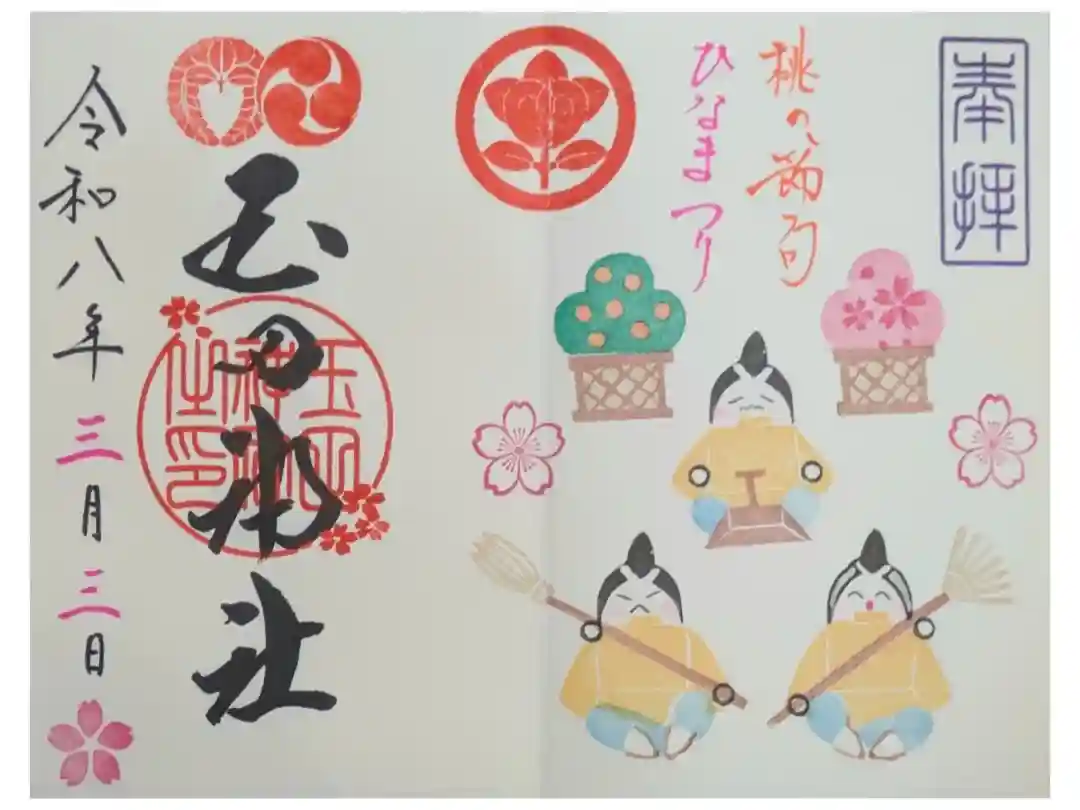 奉拝
桃の節句
ひなまつり
玉田神社
玉田
神社
之印
令和八年三月三日